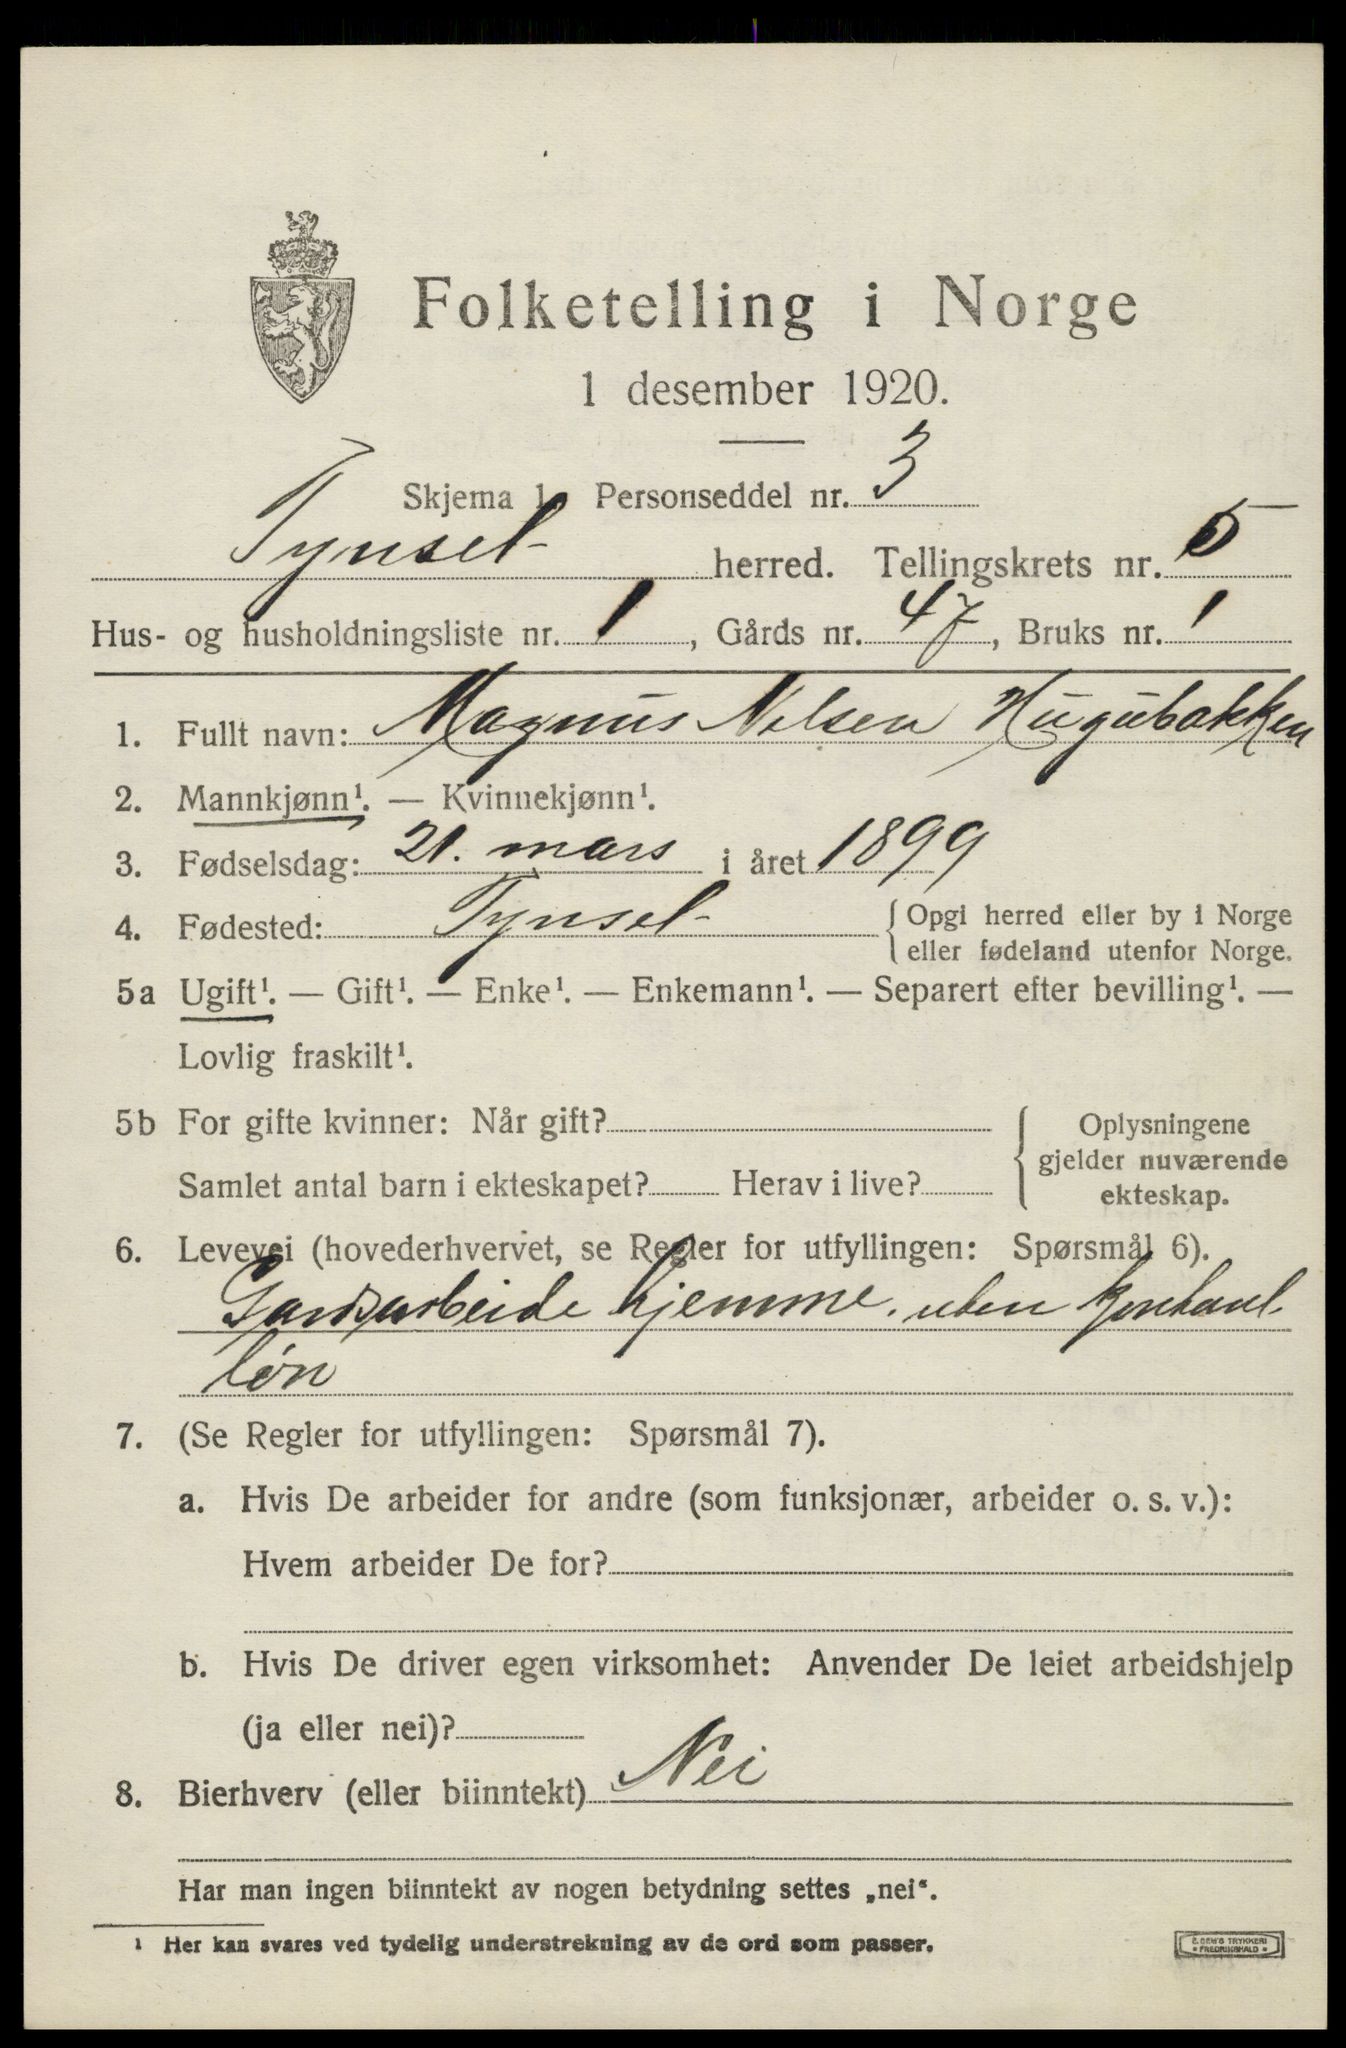 Folketelling i Norge
1 desember 1920.
Skjema 1 Personseddel nr. 3
Tynset herred. Tellingskrets nr. 5
Hus- og husholdningsliste nr. 1, Gårds nr. 47, Bruks nr. 1
1. Fullt navn: Magnus Nilsen Hugubakken
2. Mannkjønn¹. — Kvinnekjønn¹.
3. Fødselsdag: 21. mars i året 1899
4. Fødested: Tynset { Opgi herred eller by i Norge
eller fødeland utenfor Norge.
5a Ugift¹. — Gift¹. — Enke¹. — Enkemann¹. — Separert efter bevilling¹. —
Lovlig fraskilt¹.
5b For gifte kvinner: Når gift? { Oplysningene
gjelder nuværende
Samlet antal barn i ekteskapet? Herav i live? ekteskap.
6. Levevei (hovederhvervet, se Regler for utfyllingen: Spørsmål 6).
Gardsarbeide hjemme. uten kontant
løn
7. (Se Regler for utfyllingen: Spørsmål 7).
a. Hvis De arbeider for andre (som funksjonær, arbeider o. s. v.):
Hvem arbeider De for?
b. Hvis De driver egen virksomhet: Anvender De leiet arbeidshjelp
(ja eller nei)?
8. Bierhverv (eller biinntekt) Nei
Har man ingen biinntekt av nogen betydning settes „nei“.
¹ Her kan svares ved tydelig understrekning av de ord som passer.
E. SEM'S TRYKKERI
FREDRIKSHALD